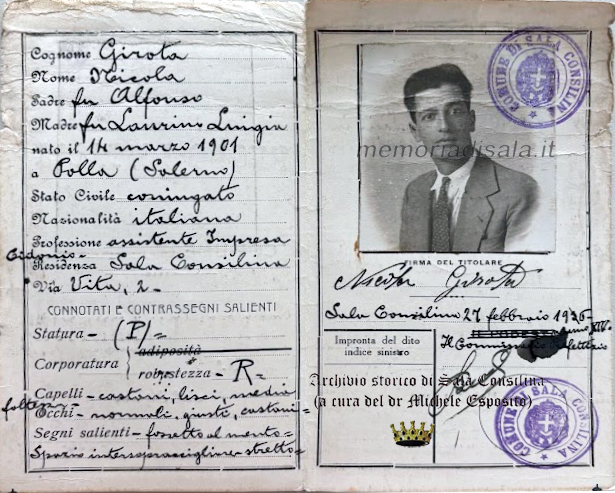 Cognome Girota
Nome Nicola
Padre fu Alfonso
Madre fu Laurino Luigia
nato il 14 marzo 1901
a Polla (Salerno)
Stato Civile coniugato
Nazionalità italiana
Professione assistente Impresa
Residenza Sala Consilina
Via Vita, 2-
CONNOTATI E CONTRASSEGNI SALIENTI
Statura - (P) =
Corporatura adiposità
robustezza - R =
Capelli - castani, lisci, media
folti =
Occhi - normali, giusti, castani =
Segni salienti - fossetta al mento =
Spazio intersopraccigliare stretto =
COMUNE DI SALA CONSILINA
memoriadisala.it
FIRMA DEL TITOLARE
Nicola Girota
Sala Consilina 27 febbraio 1936-
anno XIV
Impronta del dito
indice sinistro
Il Commissario Prefettizio
Archivio storico di Sala Consilina
(a cura del dr Michele Esposito)
COMUNE DI SALA CONSILINA